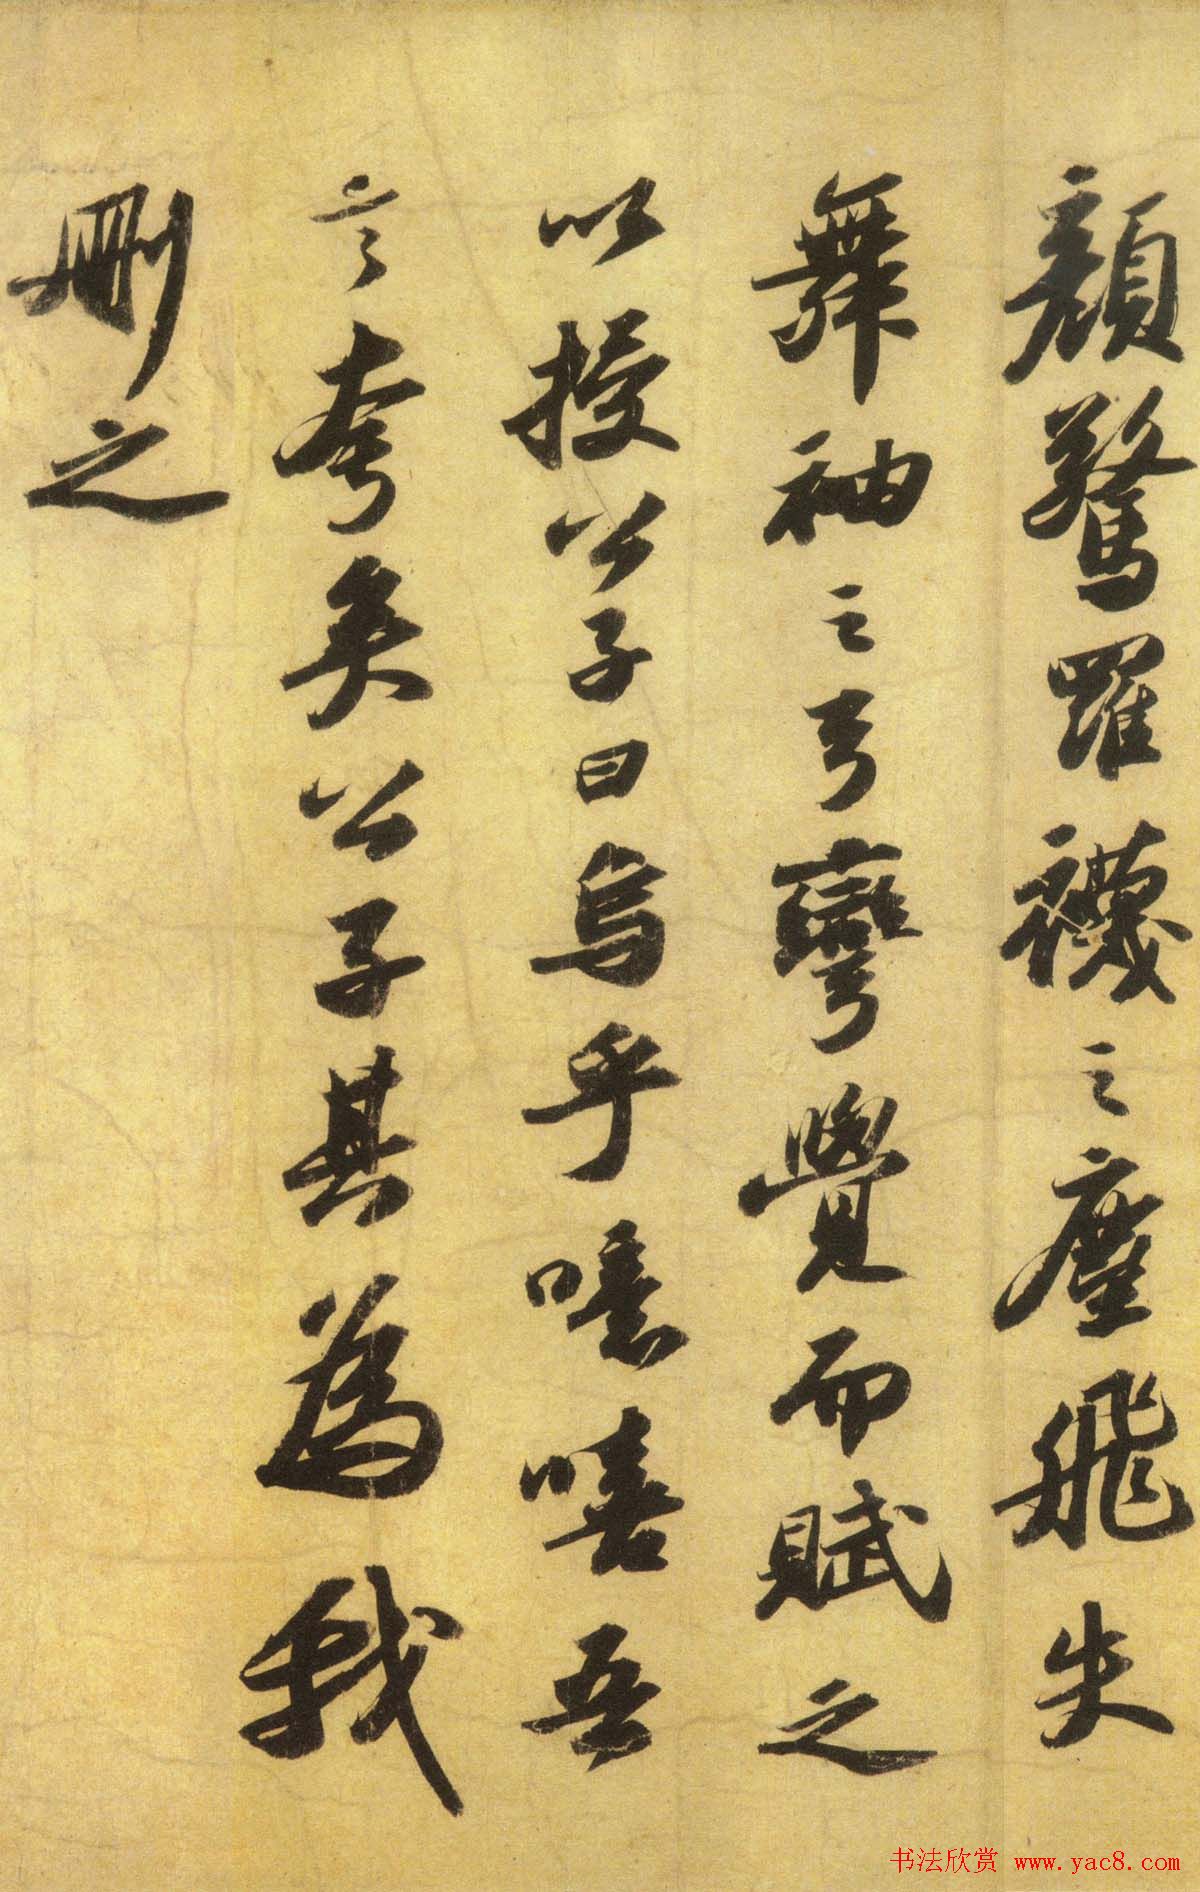 顏驚羅襪之塵飛失
舞袖之弓彎覺而賦之
以授公子曰烏乎噫嘻吾
言夸矣公子其為我
刪之
书法欣赏 www.yac8.com